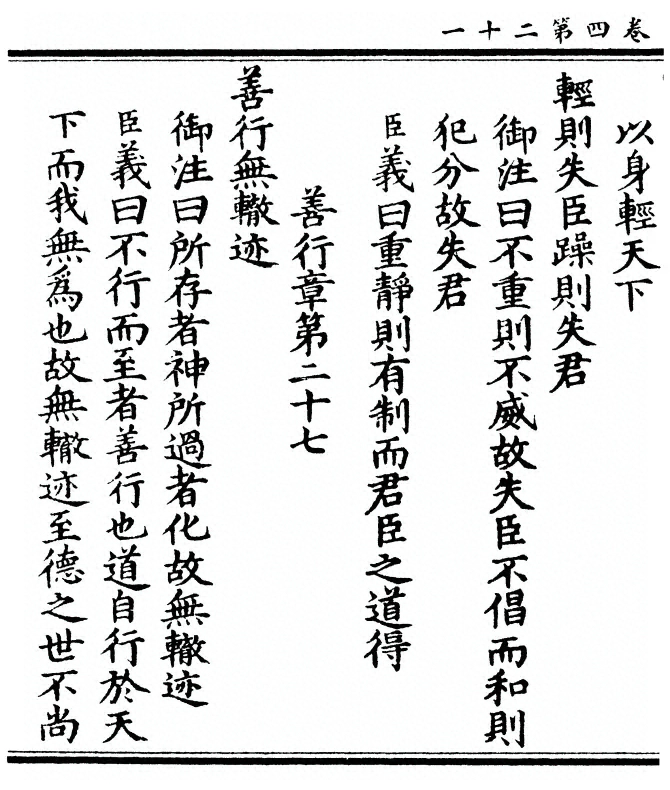 卷四第二十一
以身輕天下
輕則失臣躁則失君
御注曰不重則不威故失臣不倡而和則
犯分故失君
臣義曰重靜則有制而君臣之道得
善行章第二十七
善行無轍迹
御注曰所存者神所過者化故無轍迹
臣義曰不行而至者善行也道自行於天
下而我無爲也故無轍迹至德之世不尚